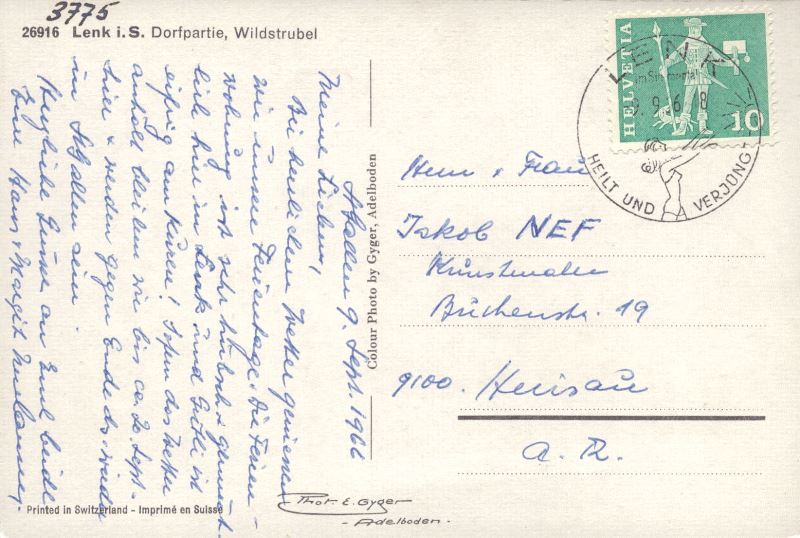 3775
26916 Lenk i.S. Dorfpartie, Wildstrubel
St Gallen 9. Sept. 1966
Meine Lieben,
Bei herrlichem Wetter geniessen
wir unsere Ferientage. Die Ferien-
wohnung ist sehr hübsch & gemütl.
hier in Lenk und Gritli ist
eifrig am Kuren! Sofern das Wetter
anhält bleiben wir bis ca 20. Sept.
hier & werden gegen Ende des wieder
in St.Gallen sein.
Herzliche Grüsse an Euch beide
Eure Hans & Margrit
Colour Photo by Gyger, Adelboden
HELVETIA
10
LENK
im Simmental
9.9.6 8
HEILT UND VERJÜNGT
Herrn & Frau
Jakob NEF
Kunstmaler
Buchenstr. 19
9100. Herisau
A. Rh.
Phot. E. Gyger
- Adelboden -
Printed in Switzerland - Imprimé en Suisse